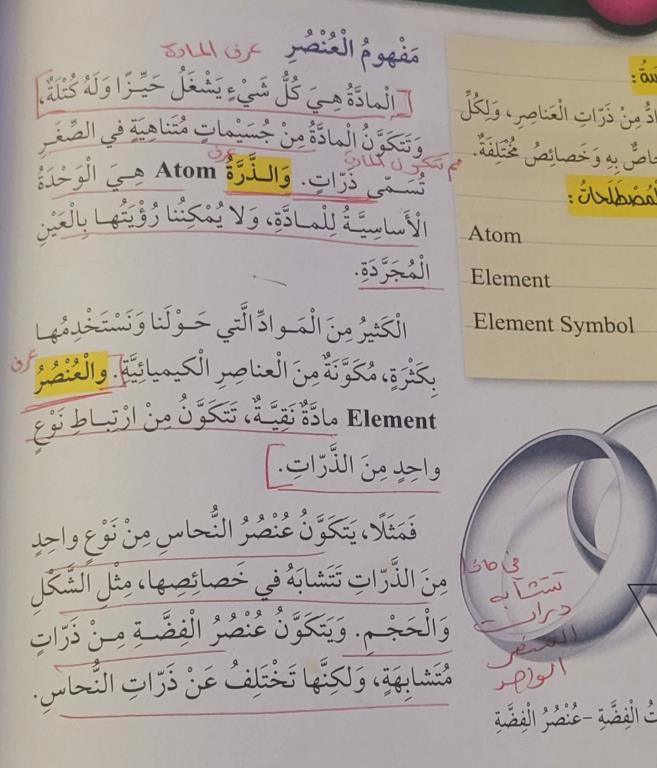 مَفْهومُ الْعُنْصُرِ
عرف المادة
الْمادَّةُ هِيَ كُلُّ شَيْءٍ يَشْغَلُ حَيِّزًا وَلَهُ كُتْلَةٌ،
وَتَتَكَوَّنُ الْمادَّةُ مِنْ جُسَيْماتٍ مُتَناهِيَةٍ في الصِّغَرِ
مم تتكون المادة
عرف
تُسَمّى ذَرّاتٍ. وَالــذَّرَّةُ Atom هِيَ الْوَحْدَةُ
الْأَساسِيَّةُ لِلْمـادَّةِ، وَلا يُمْكِنُنا رُؤْيَتُهـا بِالْعَيْنِ
الْمُجَرَّدَةِ.
الْكَثيرُ مِنَ الْمَـوادِّ الَّتي حَـوْلَنا وَنَسْتَخْدِمُهـا
عرف
بِكَثْرَةٍ، مُكَوَّنَةٌ مِنَ الْعناصِرِ الْكيميائِيَّةِ. والْعُنْصُرُ
Element مادَّةٌ نَقِيَّـةٌ، تَتَكَوَّنُ مِنْ ارْتِبـاطِ نَوْعٍ
واحِدٍ مِنَ الذَّرّاتِ.
فَمَثَلًا، يَتَكَوَّنُ عُنْصُرُ النُّحاسِ مِنْ نَوْعٍ واحِدٍ
مِنَ الذَّرّاتِ تَتَشابَهُ في خَصائِصِها، مِثْلِ الشَّكْلِ
وَالْحَجْـمِ. وَيَتَكَوَّنُ عُنْصُرُ الْفِضَّـةِ مِـنْ ذَرّاتٍ
مُتَشابِهَةٍ، وَلكِنَّها تَخْتَلِفُ عَنْ ذَرّاتِ النُّحاسِ.
مِنْ ذَرّاتِ الْعَناصِرِ، وَلِكُلِّ
بِهِ وَخَصائِصُ مُخْتَلِفَةٌ.
Atom
Element
Element Symbol
في ماذا
تتشابه
ذرات
العنصر
الواحد
الْفِضَّةِ – عُنْصُرُ الْفِضَّةِ